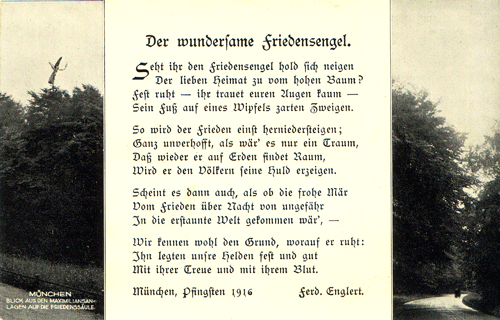 Der wundersame Friedensengel.
Seht ihr den Friedensengel hold sich neigen
Der lieben Heimat zu vom hohen Baum?
Fest ruht — ihr trauet euren Augen kaum —
Sein Fuß auf eines Wipfels zarten Zweigen.
So wird der Frieden einst herniedersteigen;
Ganz unverhofft, als wär' es nur ein Traum,
Daß wieder er auf Erden findet Raum,
Wird er den Völkern seine Huld erzeigen.
Scheint es dann auch, als ob die frohe Mär
Vom Frieden über Nacht von ungefähr
In die erstaunte Welt gekommen wär', —
Wir kennen wohl den Grund, worauf er ruht:
Ihn legten unsre Helden fest und gut
Mit ihrer Treue und mit ihrem Blut.
München, Pfingsten 1916 Ferd. Englert.
MÜNCHEN
BLICK AUS DEN MAXIMILIANSAN-
LAGEN AUF DIE FRIEDENSSÄULE.